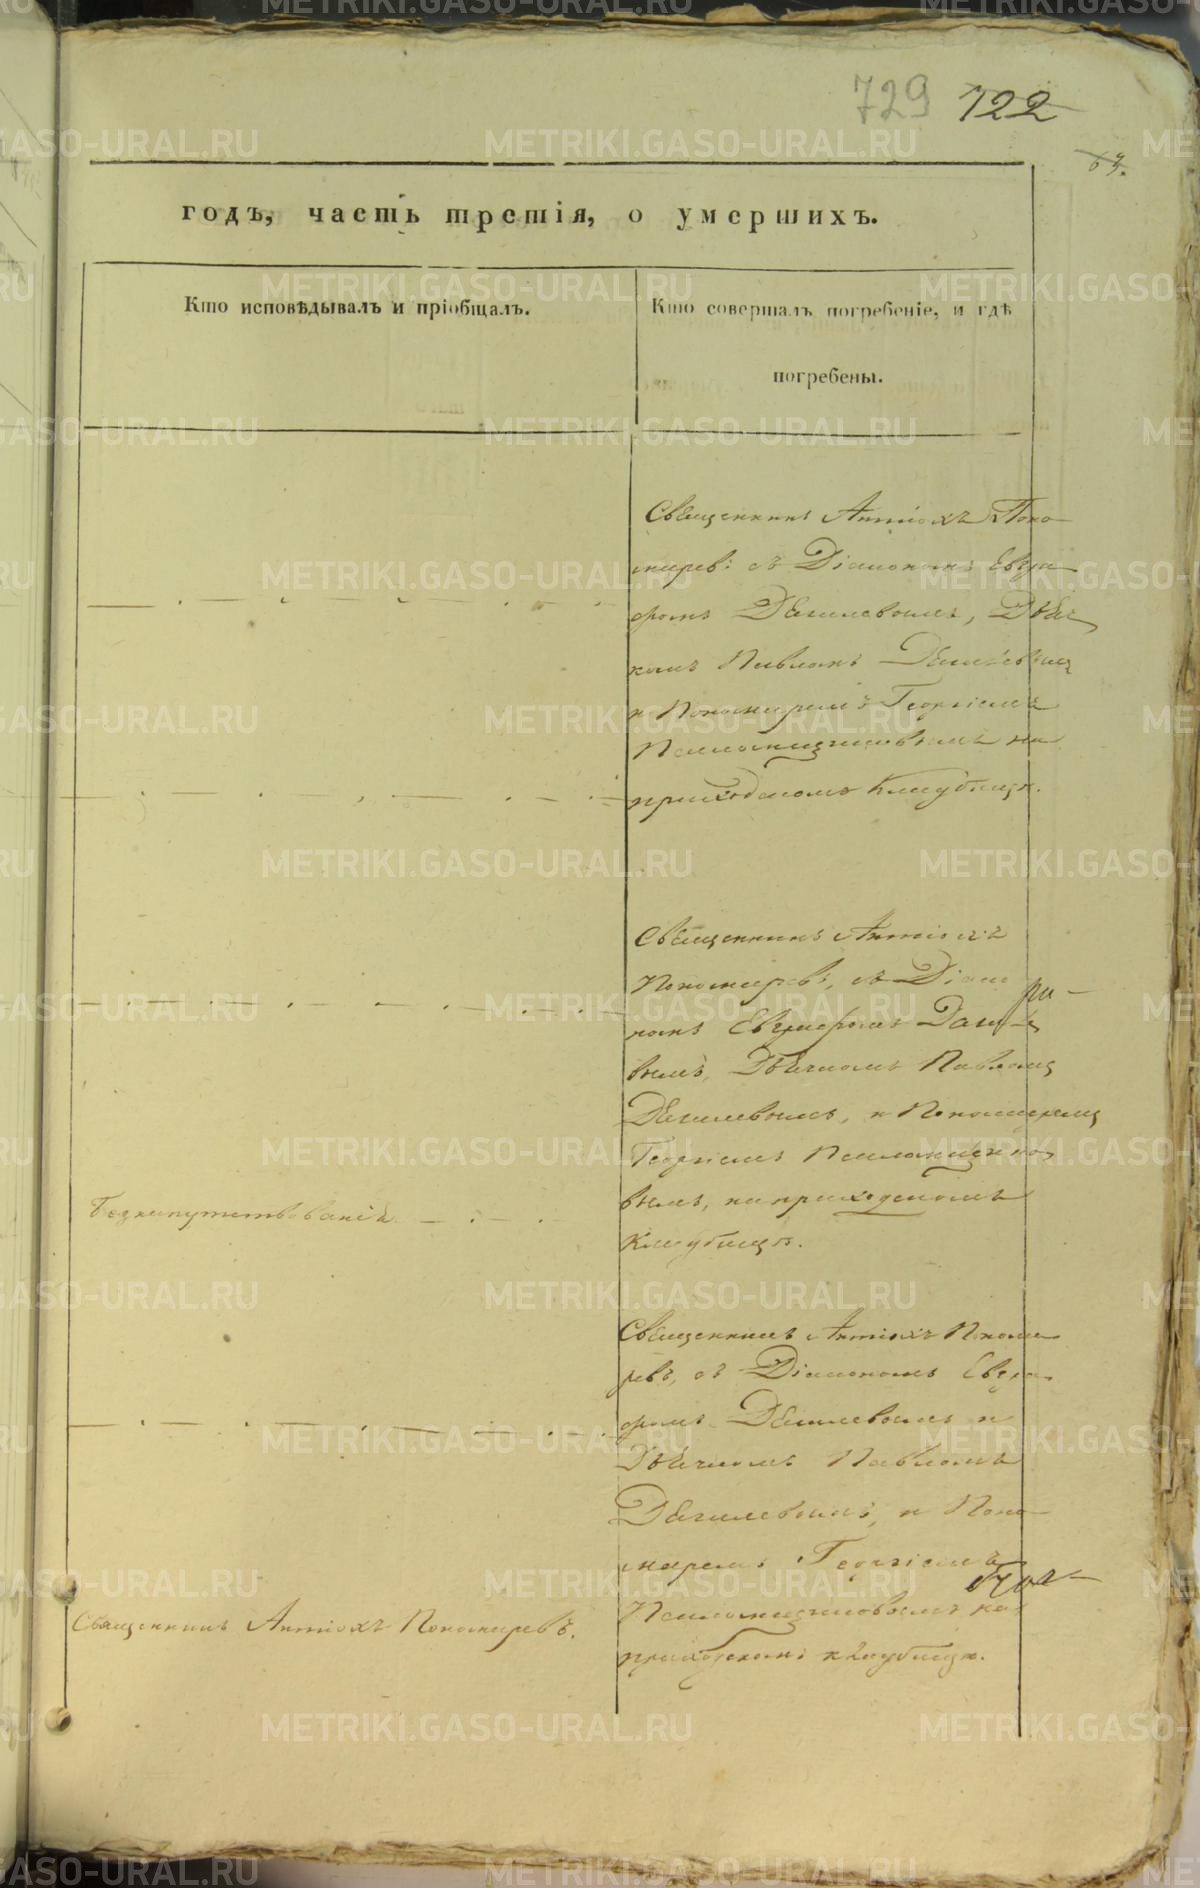 729 122
63.
годъ, часть третія, о умершихъ.
Кто исповѣдывалъ и пріобщалъ.
Кто совершалъ погребеніе, и гдѣ
погребены.
Священникъ Антіохъ Поно-
маревъ съ Діакономъ Евгра-
фомъ Дягилевымъ, Дьяч-
комъ Павломъ Дягилевымъ
и Пономаремъ Георгіемъ
на
приходскомъ кладбищѣ.
Священникъ Антіохъ
Пономаревъ, съ Діако
номъ Евграфомъ
вымъ, Дьячкомъ Павломъ
Дягилевымъ, и Пономаремъ
Георгіемъ
вымъ, на приходскомъ
кладбищѣ.
Безнапутствованія
Священникъ Антіохъ Понома-
ревъ, съ Діакономъ Евгра-
фомъ Дягилевымъ и
Дьячкомъ Павломъ
Дягилевымъ, и Поно-
маремъ Георгіемъ
на
приходскомъ кладбищѣ.
Священникъ Антіохъ Пономаревъ.
METRIKI.GASO-URAL.RU